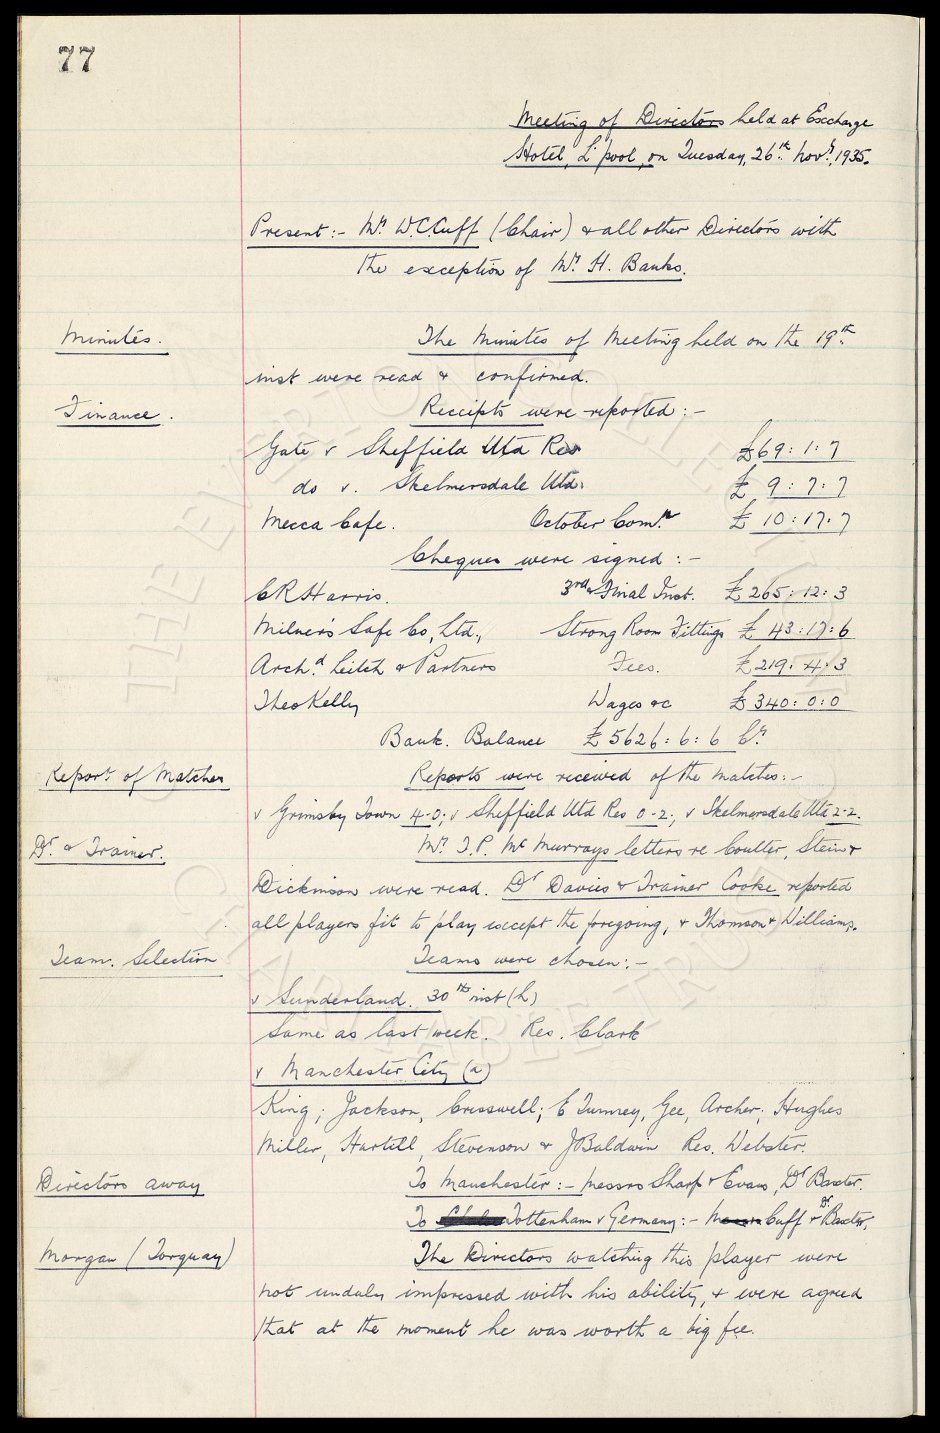 77
Meeting of Directors held at Exchange
Hotel, L'pool, on Tuesday, 26th Novr, 1935.
Present:- Mr. W.C. Cuff (Chair) & all other Directors with
the exception of Mr. H. Banks.
Minutes. The Minutes of Meeting held on the 19th
inst were read & confirmed.
Finance. Receipts were reported:-
Gate v Sheffield Utd Res £69:1:7
do v. Skelmersdale Utd: £ 9:7:7
Mecca Cafe. October Comn £ 10:17:7
Cheques were signed:-
C R Harris. 3rd & Final Inst. £265:12:3
Milner's Safe Co, Ltd., Strong Room Fittings £ 43:17:6
Archd Leitch & Partners Fees. £219:4:3
Theo Kelly Wages &c £340:0:0
Bank. Balance £5626:6:6 Cr.
Report of Matches Reports were received of the matches:-
v Grimsby Town 4-0; v Sheffield Utd Res 0-2; v Skelmersdale Utd 2-2.
Dr. & Trainer. Mr. T.P. McMurrays letters re Coulter, Stein &
Dickinson were read. Dr Davies & Trainer Cooke reported
all players fit to play except the foregoing, & Thomson & Williams.
Team. Selection Teams were chosen:-
v Sunderland. 30th inst (h)
Same as last week. Res. Clark
v Manchester City (a)
King; Jackson, Cresswell; E Tunney, Gee, Archer; Hughes
Miller, Hartill, Stevenson & J Baldwin Res. Webster.
Directors away To Manchester:- Messrs Sharp & Evans, Dr Baxter.
To Tottenham v Germany:- Messrs Cuff & Dr Baxter.
Morgan (Torquay) The Directors watching this player were
not unduly impressed with his ability, & were agreed
that at the moment he was worth a big fee.
THE EVERTON COLLECTION
CHARITABLE TRUST